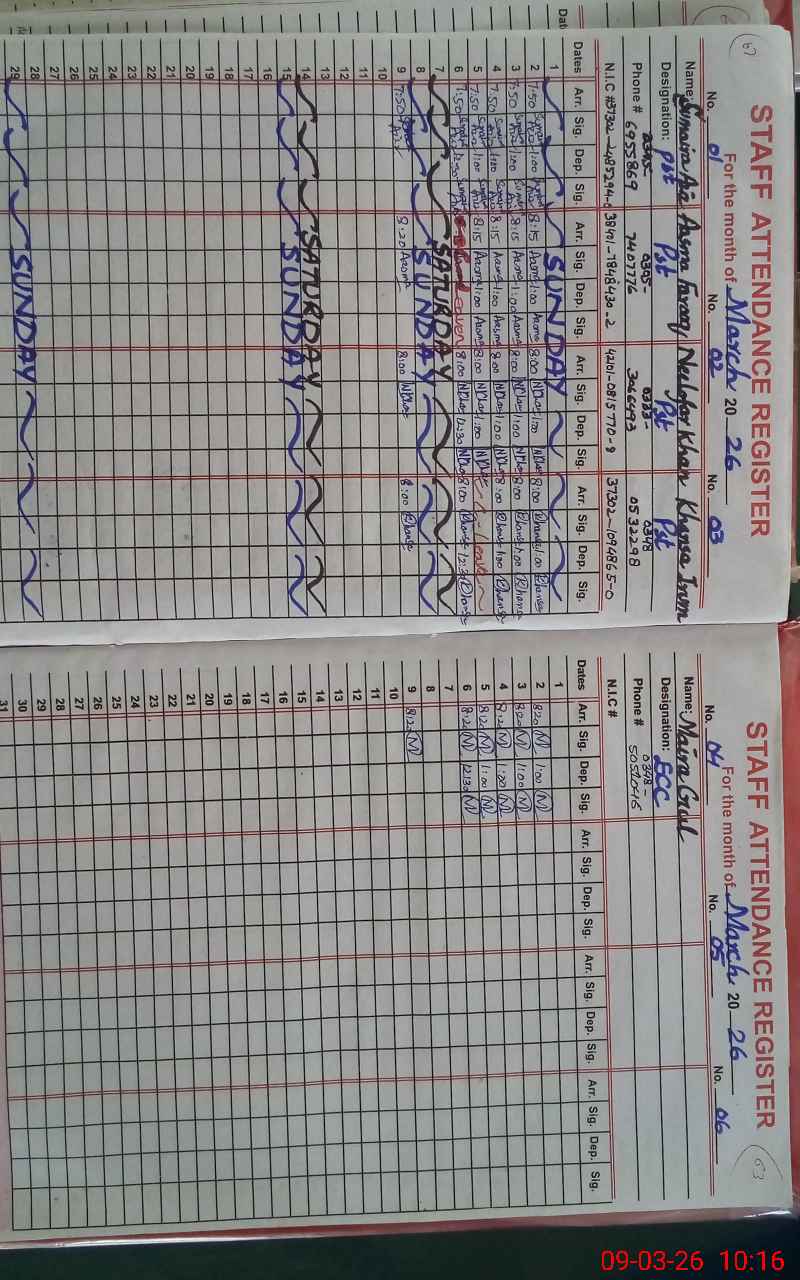 67
STAFF ATTENDANCE REGISTER
For the month of March 20 26
No. 01 No. 02 No. 03
Name: Sumaira Aziz Aasma Farooq Neelofar Khan Khansa Irum
Designation: Pst Pst Pst Pst
Phone # 6955869 0305- 7407776 0323- 3066493 0348 0532298
N.I.C # 37302-2485294-0 38401-7848430-2 42101-0815770-9 37302-1094865-0
Dates Arr. Sig. Dep. Sig. Arr. Sig. Dep. Sig. Arr. Sig. Dep. Sig. Arr. Sig. Dep. Sig.
1 SUNDAY
2 7:50 1:00 8:15 Aasma 1:00 Aasma 8:00 NKhan 1:00 NKhan 8:00 Khansa 1:00 Khansa
3 7:50 1:00 8:15 Aasma 1:00 Aasma 8:00 NKhan 1:00 NKhan 8:00 Khansa 1:00 Khansa
4 7:50 1:00 8:15 Aasma 1:00 Aasma 8:00 NKhan 1:00 NKhan 8:00 Khansa 1:00 Khansa
5 7:50 1:00 8:15 Aasma 1:00 Aasma 8:00 NKhan 1:00 NKhan Leave
6 7:50 12:30 Leave 8:00 NKhan 12:30 NKhan 8:00 Khansa 12:30 Khansa
7 SATURDAY
8 SUNDAY
9 7:50 8:20 Aasma 8:00 NKhan 8:00 Khansa
10
11
12
13
14 SATURDAY
15 SUNDAY
16
17
18
19
20
21
22
23
24
25
26
27
28
29 SUNDAY
63
STAFF ATTENDANCE REGISTER
For the month of March 20 26
No. 04 No. 05 No. 06
Name: Maira Gul
Designation: ECC
Phone # 0348- 5052045
N.I.C #
Dates Arr. Sig. Dep. Sig. Arr. Sig. Dep. Sig. Arr. Sig. Dep. Sig. Arr. Sig. Dep. Sig.
1
2 8:20 M 1:00 M
3 8:20 M 1:00 M
4 8:20 M 1:00 M
5 8:20 M 1:00 M
6 8:20 M 12:30 M
7
8
9 8:20 M
10
11
12
13
14
15
16
17
18
19
20
21
22
23
24
25
26
27
28
29
30
31
09-03-26 10:16